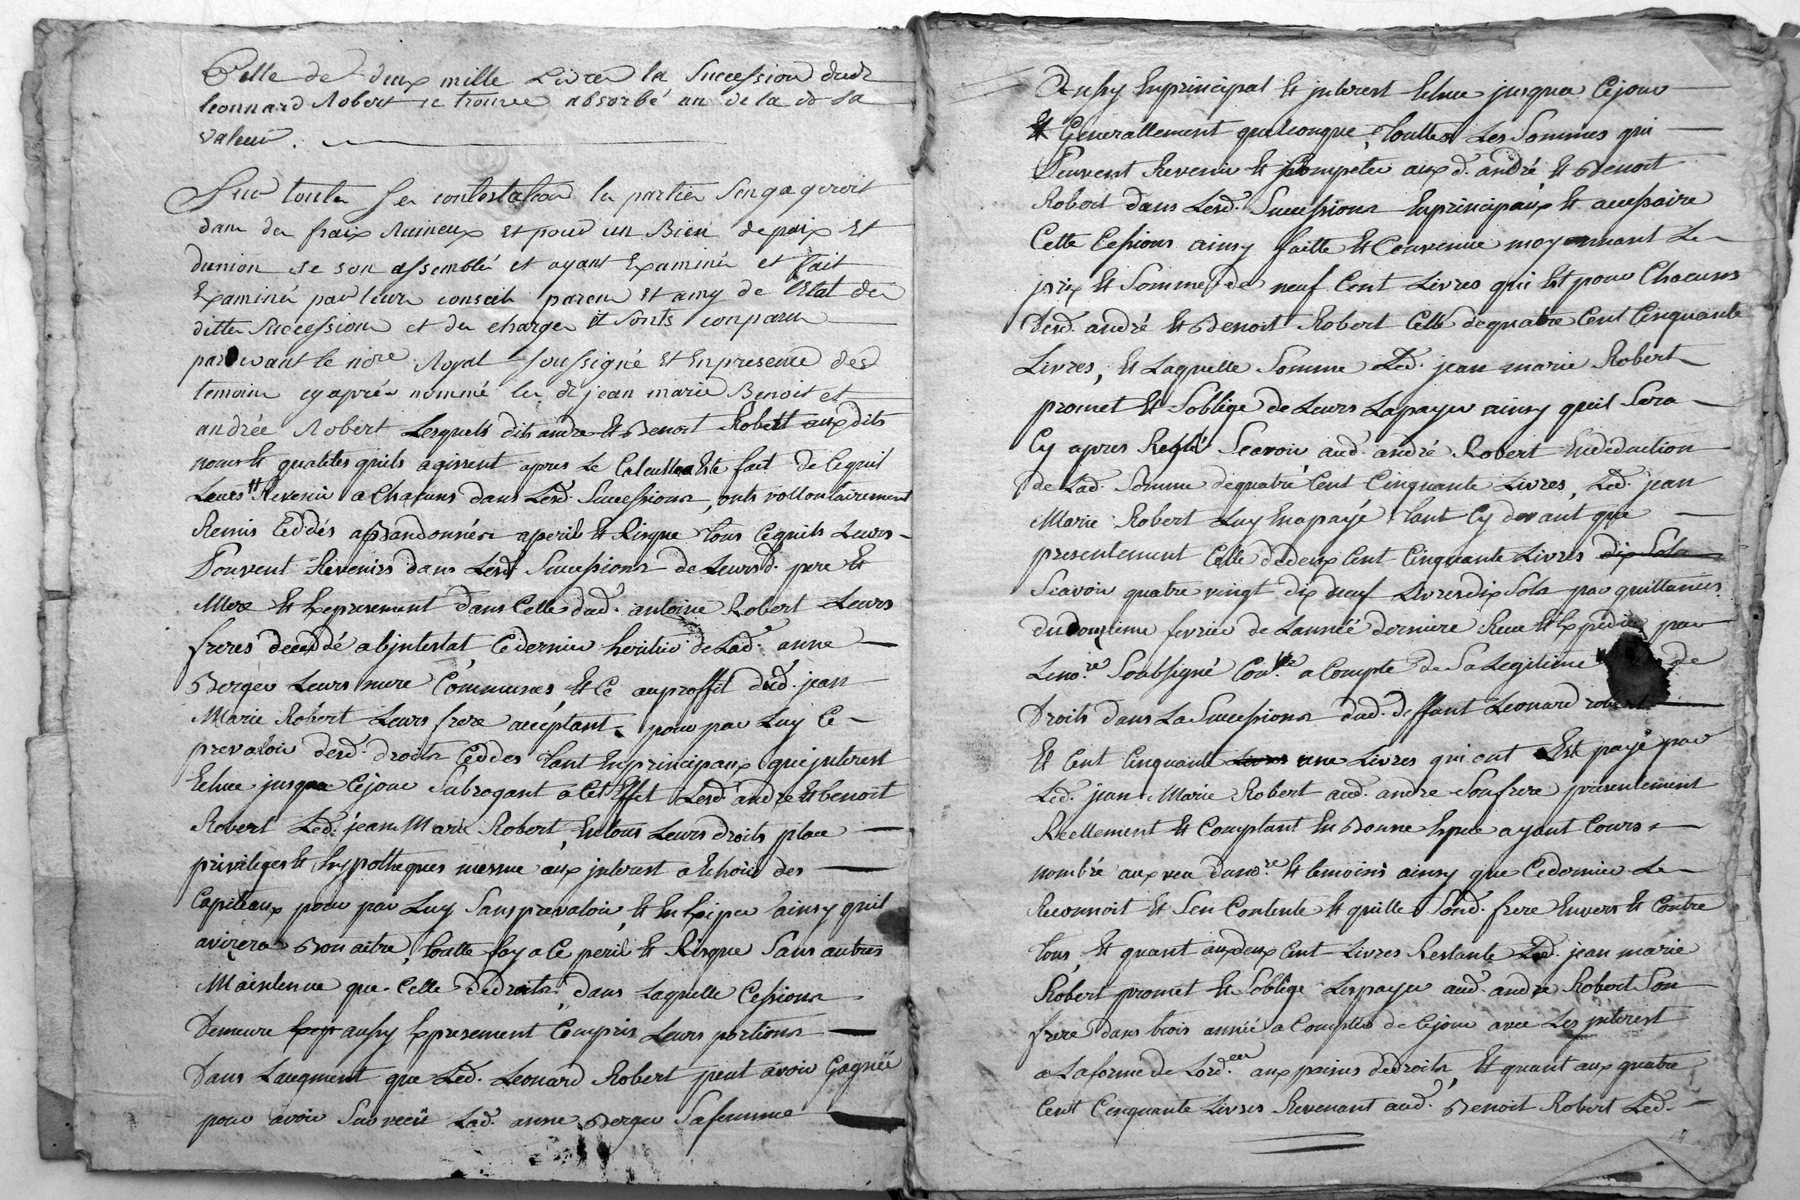 Celle de deux mille Livres la Succession dudt
leonnard Robert se trouve absorbé au dela de sa
valeur.
Sur toutes ses contestations les parties Sengageroit
dans des fraix Ruineux et pour un Bien de paix et
dunion se son assemblé et ayant Examiné et fait
Examiné par leurs conseils parens et amy de lEstat des
dittes Successions et des charges et sonts comparus
pardevant le nore Royal soussigné et En presence des
temoins cy aprés nommé les dt jean marie Benoit et
andrée Robert Lesquels dits andre et Benoit Robert aux dits
noms et qualites quils agissent apres Le Calculle Este fait de Cequil
Leurs Revenir a Chacuns dans Lesd. Successions, onts vollontairement
Remis Ceddés abandonnés a peril et Risque tous Cequils Leurs
Pouvent Revenirs dans Lesd Successions de Leursd. pere et
Mere et Expresement dans Celle dud. antoine Robert Leurs
freres decedé abjntestat, Cedernier heritié de Lad. anne
Berger Leurs mere Communes, et Ce auproffit dud. jean
Marie Robert Leurs frere accéptant pour par Luy Ce
prevaloir desd. droits Ceddes tant Enprincipaux que jnterest
Echue jusqua Cejour Subrogant a Cet Effet Lesd. andre et benoit
Robert Led. jean Marie Robert, En tous Leurs droits place
privileges et hypotheques mesme aux jnterest a Echoir des
Capiteaux pour par Luy Sans prevaloir, et En Exiper ainsy quil
avizera Bon aitre, toutte foy a Ce peril et Risque Sans autres
Maintenue que Celle de droits, dans Laquelle Cessions
Demeure aussy Expresement Compris Leurs portions
Dans Laugment que Led. Leonard Robert peut avoir Gagnée
pour avoir Survecû Lad. anne Berger Safemme
Aussy Enprincipal et jnterest Echue jusqua Cejour
et Generallement quelconque, touttes Les Sommes qui
Peuvent Revenir et Compéter aux d. andré et Benoit
Robert dans Lesd. Successions Enprincipaux et accessoire
Cette Cessions ainsy faitte et Convenue moyennant Le
prix et Somme de neuf Cent Livres qui Est pour Chacuns
desd. andré et Benoit Robert Celle de quatre Cent Cinquante
Livres, et Laquelle Somme Led. jean marie Robert
promet et Soblige de Leurs Lapayer ainsy quil Sera
Cy apres Reglé Scavoir aud. andré Robert En déduction
de Lad. Somme de quatre Cent Cinquante Livres, Led. jean
Marie Robert Luy En a payé tant Cy devant que
presentement Celle de deux Cent Cinquante Livres dix Sols
Scavoir quatre vingt dix neuf Livres dix Sols par quittances
du douzieme fevrier de Lannéé derniere Reue et Expediée par
Leno.re Soubsigné a Compte de Sa Legitime de
Droits dans La Succession dud. deffunt Leonard robert
Et Cent Cinquante une Livres qui ont Esté payé par
Led. jean Marie Robert aud. andre Son frere présentement
Réellement et Comptant En Bonne Espece ayant Cours
nombré aux veu dunore et temoins ainsy que Cedernier Le
Reconnoit et Sen Contente et quitte Sond. frere Envers et Contre
tous, et quant aux deux cent Livres Restante Led. jean marie
Robert promet et Soblige Lespayer aud. andre Robert Son
frere dans trois année a Compter de Cejour avec Les jnterest
a Laforme de Lord.ce aux peines de droits, Et quant aux quatre
Cent Cinquante Livres Revenant aud. Benoit Robert Led.